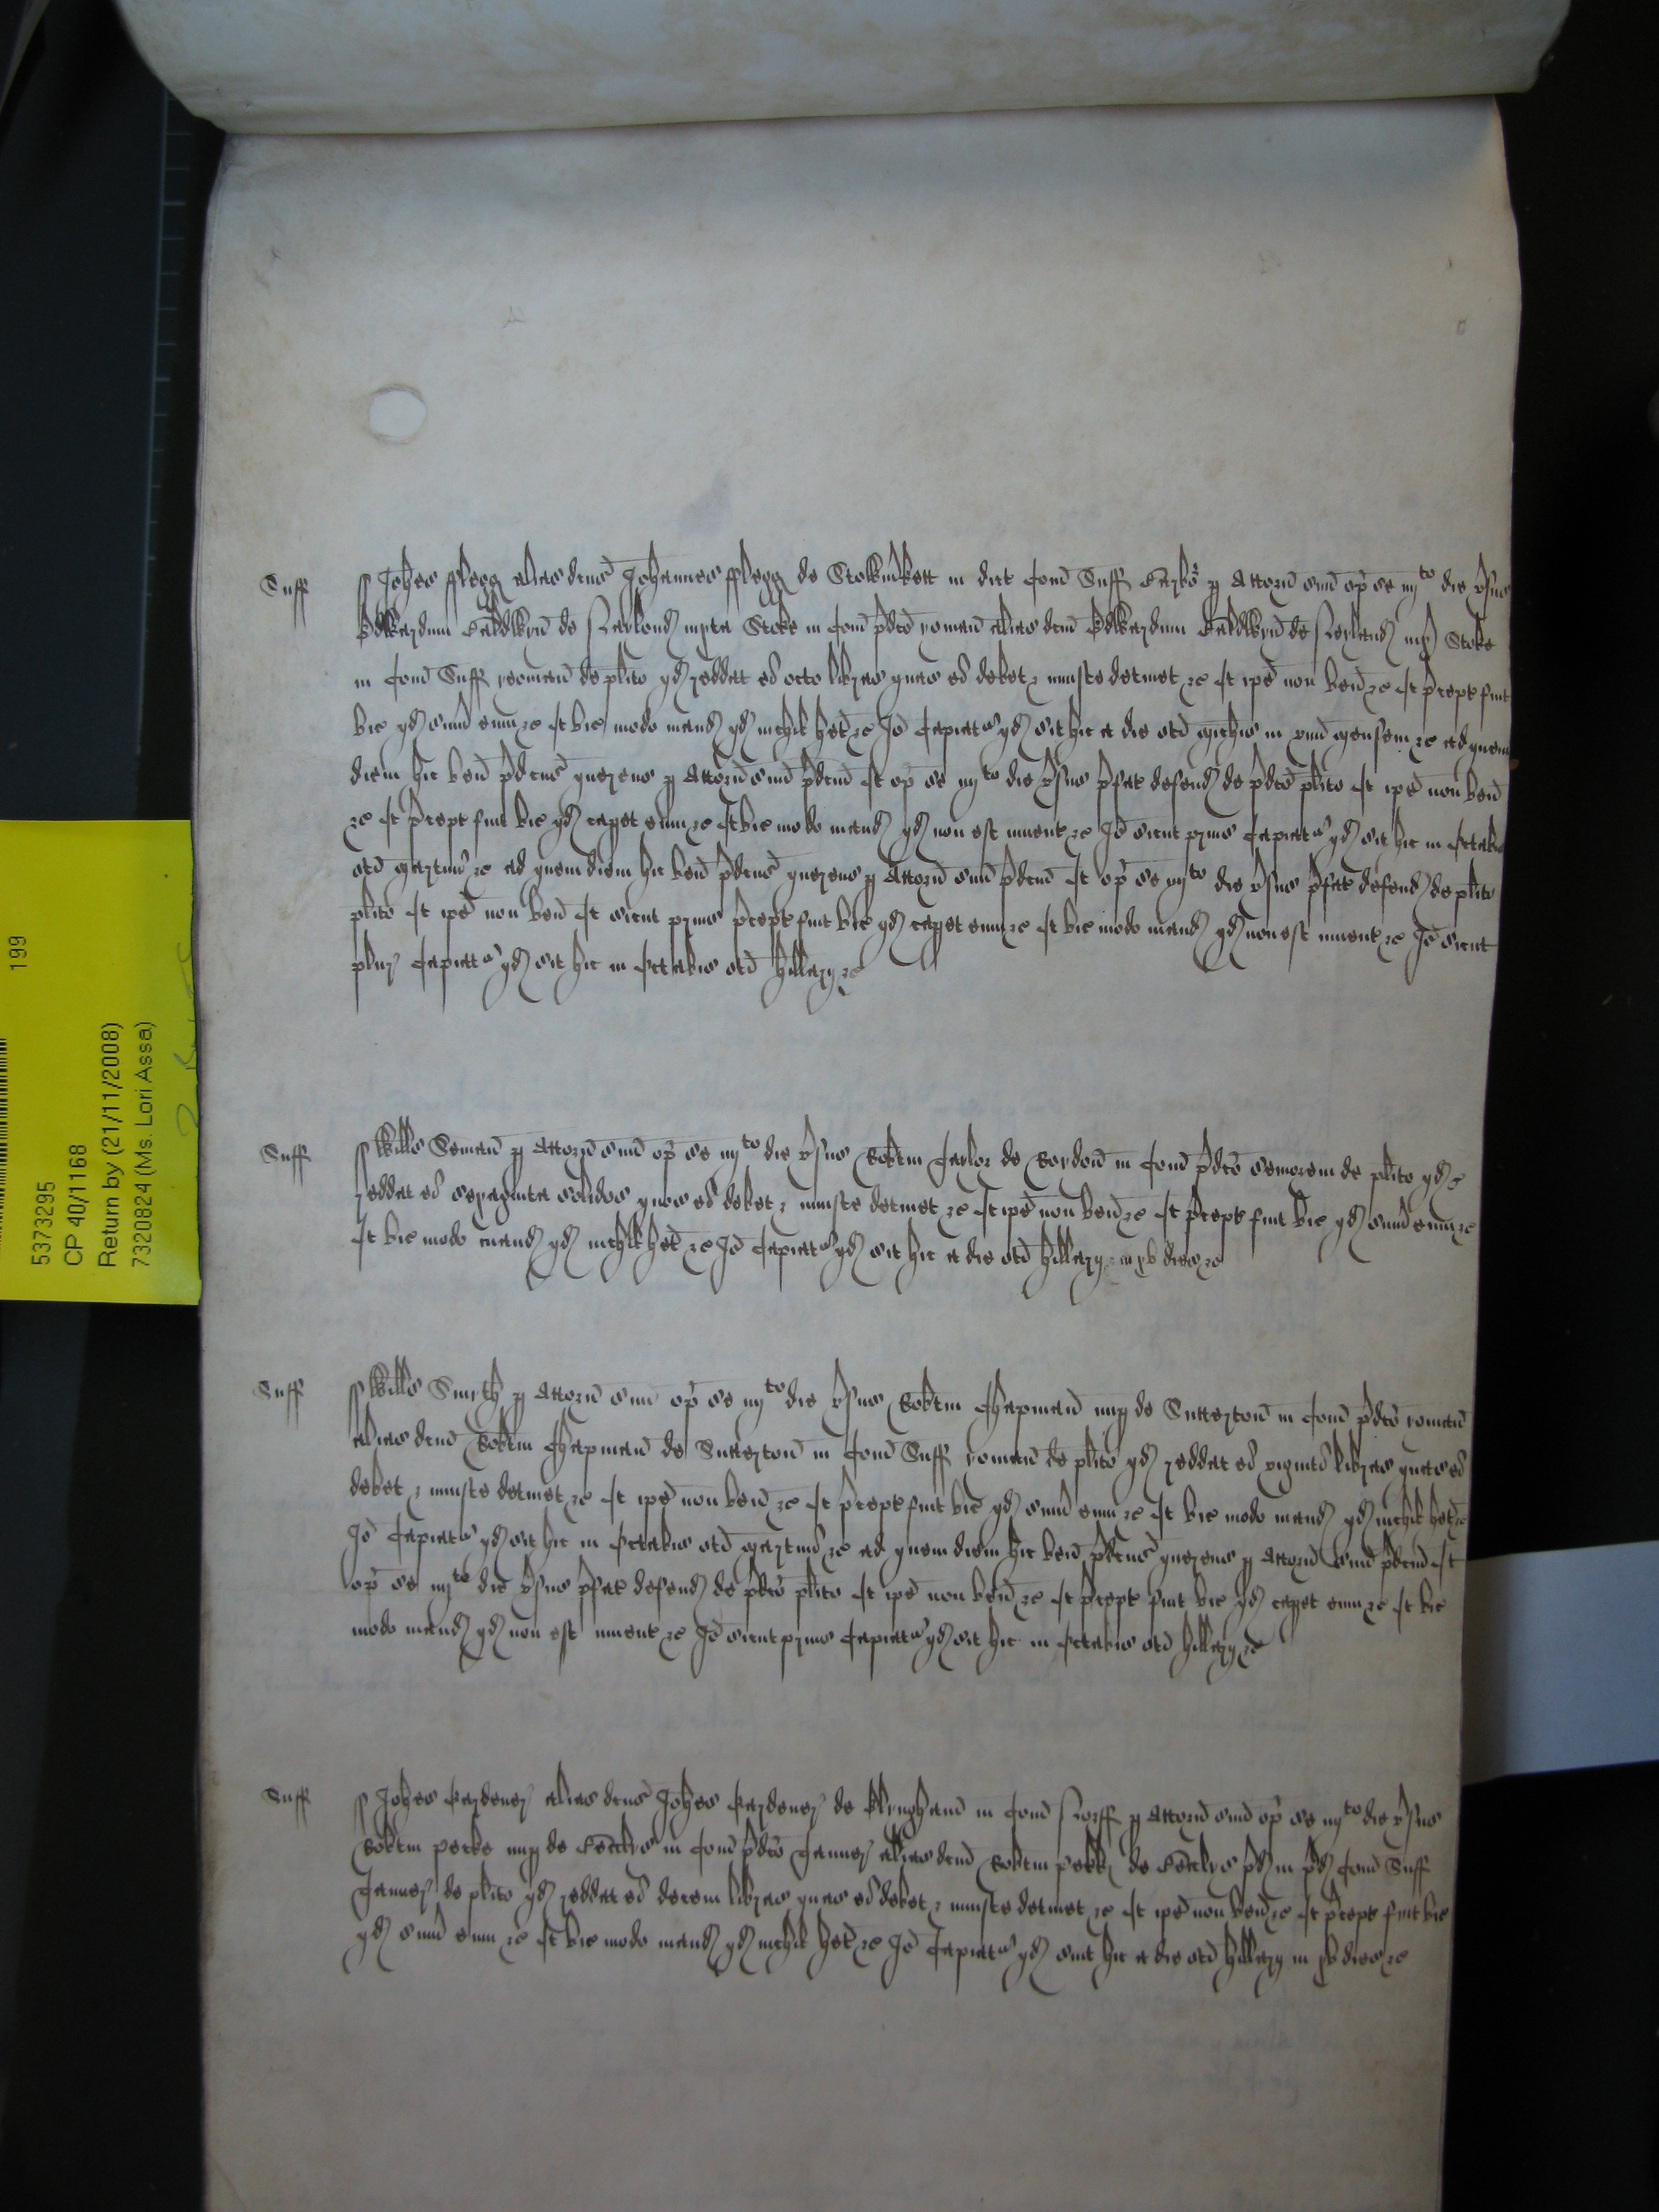 Suff
Joħes Fflegg alias dcūs Johannes fflegg de Stowmkett in dict Com̄ Suff p Attorn̄ suū op̄ se iiijto die v̄sus
Edwardum Baldwyn̄ de Neylond iuxta Stoke in Com̄ p̄dcō yoman̄ alias dcm̄ Edwardum Baldwyn̄ de Neyland iuxa Stoke
in Com̄ Suff yeoman̄ de plito qd reddat ei octo libras quas ei debet & iniuste detinet &c Et ip̄e non ven̄ &c Et p̄cept fuit
vic qd sum̄ eum &c Et vic modo mand qd nichil het &c Jō Capiatr qd sit hic a die sc̄i Micħis in vnū mensem &c ad quem
diem hic ven̄ p̄dcūs querens p Attorn̄ suū p̄dcm̄ Et op̄ se iiijto die v̄sus p̄fat defend de p̄dcō plito Et ip̄e non ven̄
&c Et p̄cept fuit vic qd capet eum &c Et vic modo mand qd non est invent &c Jō sicut prius Capiatr qd sit hic in Octabis
sc̄i Martini &c ad quem diem hic ven̄ p̄dcūs querens p Attorn̄ suū p̄dcm̄ Et op̄ se iiijto die v̄sus p̄fat defend de plito
plito Et ip̄e non ven̄ Et sicut prius p̄cept fuit vic qd capet eum &c Et vic modo mand qd non est invent &c Jō sicut
plur Capiatr qd sit hic in Octabis sc̄i Hillarij &c
Suff
Willūs Seman̄ p Attorn̄ suū op̄ se iiijto die v̄sus Rob̄tm Taylor de Reydon̄ in Com̄ p̄dcō seniorem de plito qd
reddat ei sexaginta solidos quos ei debet & iniuste detinet &c Et ip̄e non ven̄ &c Et p̄cept fuit vic qd sum̄ eum &c
Et vic modo mand qd nichil het &c Jō Capiatr qd sit hic a die sc̄i Hillarij in xv dies &c
Suff
Willūs Smyth p Attorn̄ suū op̄ se iiijto die v̄sus Rob̄tm Chapman̄ nup de Sutterton̄ in Com̄ p̄dcō yoman̄
alias dcm̄ Rob̄tm Chapman̄ de Sutterton̄ in Com̄ Suff yoman̄ de plito qd reddat ei viginti libras quas ei
debet & iniuste detinet &c Et ip̄e non ven̄ &c Et p̄cept fuit vic qd sum̄ eum &c Et vic modo mand qd nichil het &c
Jō Capiatr qd sit hic in Octabis sc̄i Martini &c ad quem diem hic ven̄ p̄dcūs querens p Attorn̄ suū p̄dcm̄ Et
op̄ se iiijto die v̄sus p̄fat defend de p̄dcō plito Et ip̄e non ven̄ &c Et p̄cept fuit vic qd capet eum &c Et vic
modo mand qd non est invent &c Jō sicut prius Capiatr qd sit hic in Octabis sc̄i Hillarij &c
Suff
Joħes Gardener alias dcūs Joħes Gardener de Elyngham̄ in Com̄ Norff p Attorn̄ suū op̄ se iiijto die v̄sus
Rob̄tm Pecke nup de Beccles in Com̄ p̄dcō Tanner alias dcm̄ Rob̄tm Pekk de Beccles p̄d in p̄d Com̄ Suff
Tanner de plito qd reddat ei decem libras quas ei debet & iniuste detinet &c Et ip̄e non ven̄ &c Et p̄cept fuit vic
qd sum̄ eum &c Et vic modo mand qd nichil het &c Jō Capiatr qd sint hic a die sc̄i Hillarij in xv dies &c
199
5373295
CP 40/1168
Return by (21/11/2008)
73208824 (Ms. Lori Assa)